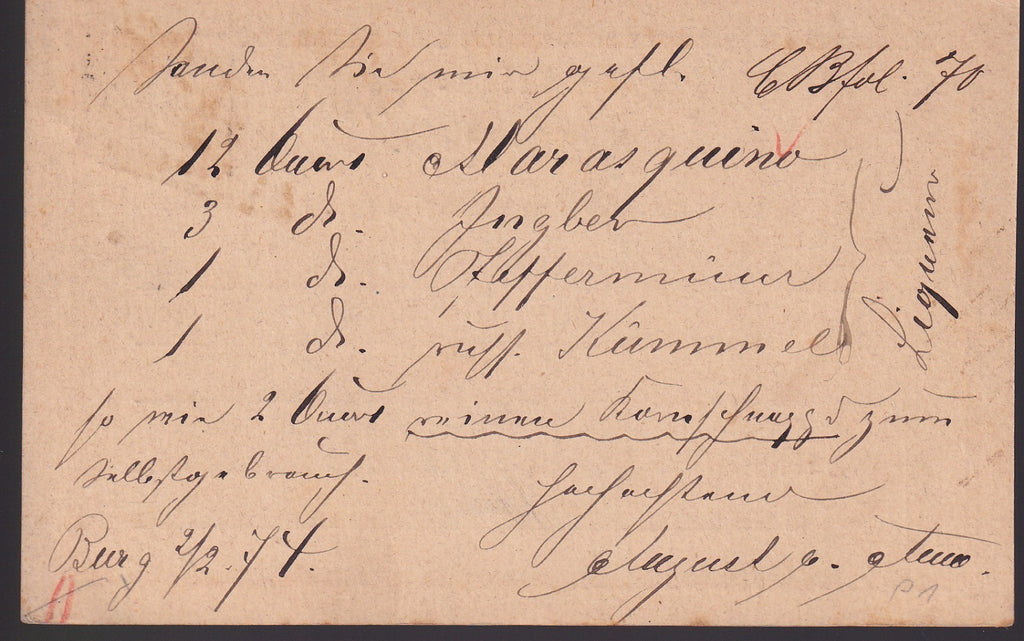 Senden Sie mir gefl. CBfol. 70
12 Quart Marasquino
3 do. Ingber
1 do. Pfeffermünz
1 do. russ. Kümmel
Liqueur
so wie 2 Quart reinen Kornschnapps zum
Selbstgebrauch.
Hochachtend
Burg 2/2. 74. August
P1